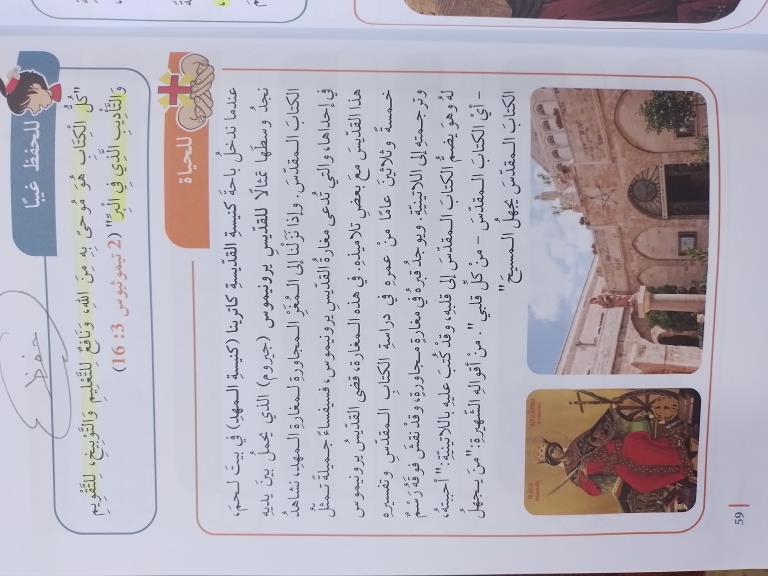 للحفظ غيبًا
"كُلُّ الْكِتَابِ هُوَ مُوحىً بِهِ مِنَ اللهِ، وَنَافِعٌ لِلتَّعْلِيمِ وَالتَّوْبِيخِ، لِلتَّقْوِيمِ
وَالتَّأْدِيبِ الَّذِي فِي الْبِرِّ" (2 تيموثيوس 3: 16)
حفظ
للحياة
عندما ندخلُ باحةَ كنيسةِ القدّيسةِ كاترينا (كنيسةِ المهدِ) في بيتَ لحمَ،
نجدُ وسطَها تمثالًا للقدّيسِ يرونيموس (جيروم) الذي يحملُ بينَ يديهِ
الكتابَ المقدّسَ. وإذا نزلْنا إلى المُغَرِ المجاورةِ لمغارةِ المهدِ، نشاهدُ
في إحداها، والتي تُدعى مغارةَ القدّيسِ يرونيموس، فسيفساءَ جميلةً تمثّلُ
هذا القدّيسَ معَ بعضِ تلاميذهِ. في هذه المغارةِ، قضى القدّيسُ يرونيموس
خمسةً وثلاثينَ عامًا من عمرِهِ في دراسةِ الكتابِ المقدّسِ وتفسيرِهِ
وترجمتِهِ إلى اللاتينيّةِ. ويوجدُ قبرُهُ في مغارةٍ مجاورةٍ، وقدْ نقشَ فوقَهُ رسْمٌ
لهُ وهوَ يضمُّ الكتابَ المقدّسَ إلى قلبِهِ، وقدْ كُتبَ عليهِ باللاتينيّةِ: "أحببتُهُ،
– أيْ الكتابَ المقدّسَ – منْ كلِّ قلبي". منْ أقوالِهِ الشهيرةِ: "منْ يجهلُ
الكتابَ المقدّسَ يجهلُ المسيحَ"
59